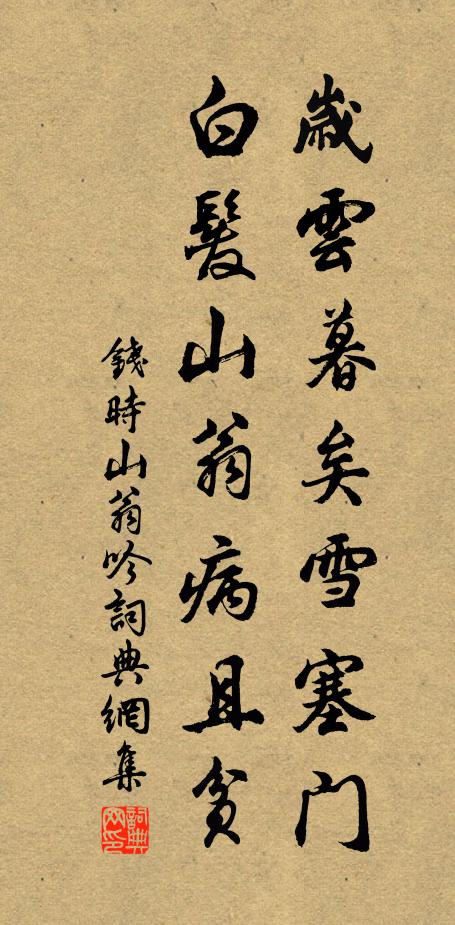 歲雲暮矣雪塞門
白髮山翁病且貧
錢時山翁吟詞典網集
詞典網印